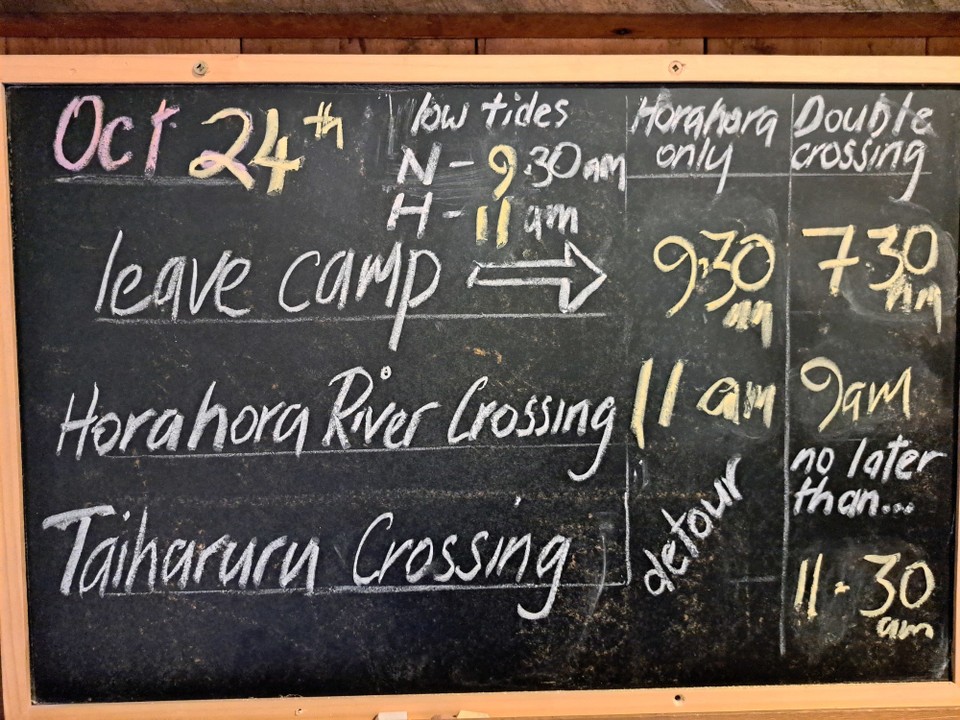 Oct 24th
low tides
N - 9.30am
H - 11 am
Horahora only
Double crossing
leave camp → 9.30 am 7 30 am
Horahora River Crossing 11 am 9am
no later than...
Taiharuru Crossing detour 11 - 30 am